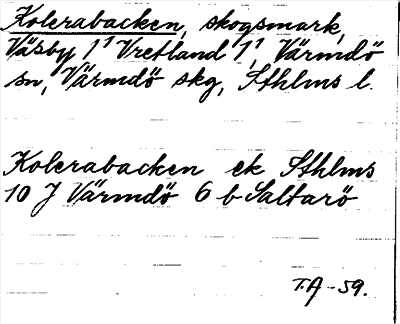 Kolerabacken, skogsmark,
Väsby 1¹ Vretland 1¹, Värmdö
sn, Värmdö skg, Sthlms l.
Kolerabacken ek Sthlms
10 J Värmdö 6 b Saltarö
T.A -59.